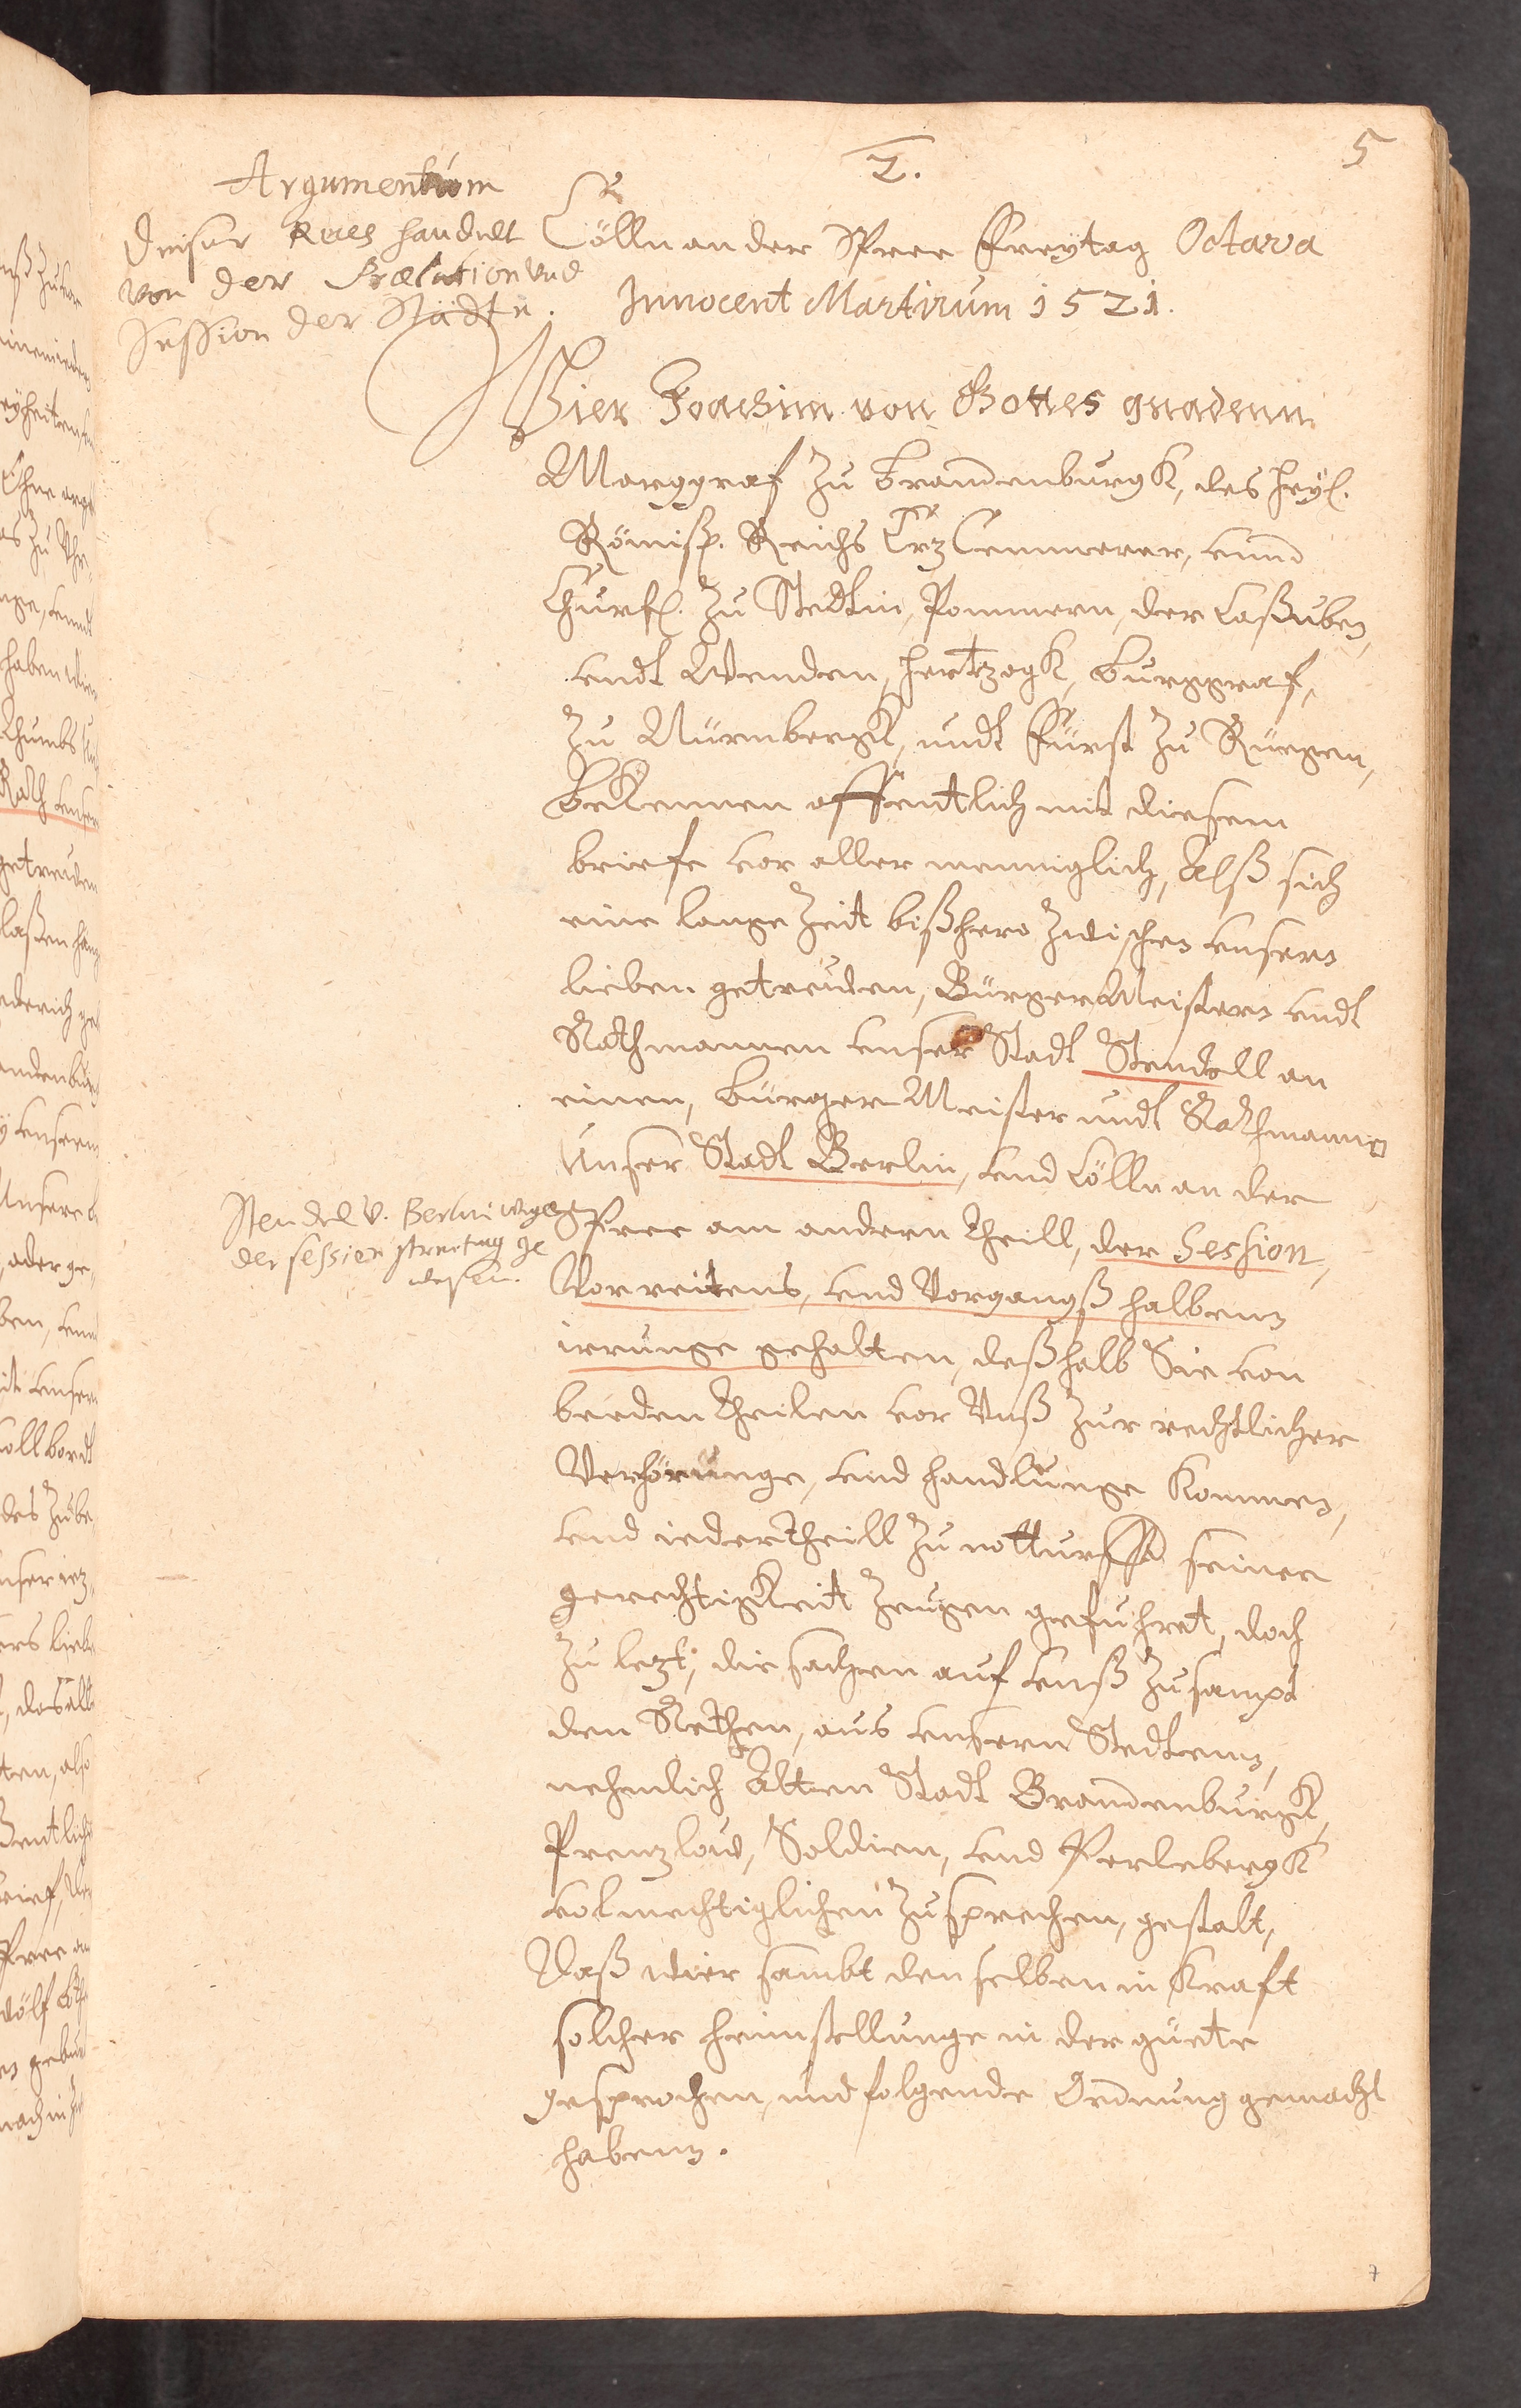 5
2.
Argumentum
Dieser Reces handelt
von der Prælation und
Session der Städte.
Cölln an der Spree Freytag Octava
Innocent Martirum 1521.
Wier Joachim von Gottes gnadenn
Marggraf zu Brandenburgk, des heyl.
Römisch. Reichs Ertz Cemmerer, vnnd
Churf. zu Stedtin, Pommern, der Caßuben,
vndt Wenden, Hertzogk, Burggraf,
zu Nürmbergk, undt Fürst zu Rügen,
Bekennen offentlich mit diesem
briefe vor aller menniglich, Alß sich
eine lange Zeit bißhero zwischen vnsern
lieben getreuden, BürgerMeistern vndt
Rathmannen vnser Stadt Stendell an
einen, Bürger Meister undt Rathmanne
Unser Stadt Berlin, vnd Cölln an der
Spree am andern theill, der Session,
Vorreitens, vnd Vorgangß halbenn
irrunge gehalten, deßhalb Sie von
beeden theilen vor Vnß zur rechtlicher
Verhörunge, vnd handlunge kommen,
vnd jeder theill zu notturfft seiner
gerechtigkeit Zeugen gefuhret, doch
zu lezt, die sachen auf vnß zusampt
den Rethen, aus vnsern Stedtenn,
nehmlich Alten Stadt Brandenburgk,
Prenzlow, Soldien, vnd Perlebergk
volmechtiglichen zusprechen, gestalt,
Daß wier sambt denselben in Kraft
solcher heimstellunge in der güete
gesprochen, und folgende Ordnung gemacht
habenn.
Stendel v. Berlin wegen
der session streitug ge
wesen.
7